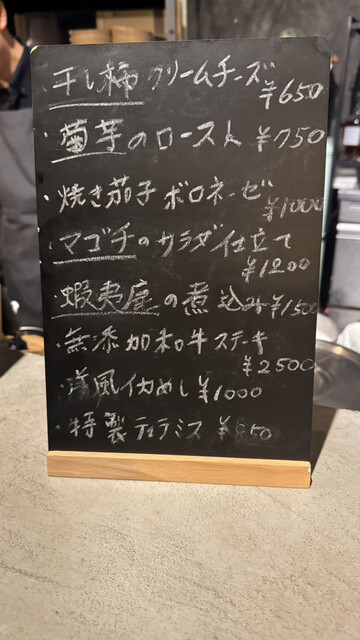 ・干し柿クリームチーズ
¥650
・菊芋のロースト ¥750
・焼き茄子ボロネーゼ
¥1000
・マゴチのサラダ仕立て
¥1200
・蝦夷鹿の煮込み ¥1500
・無添加和牛ステーキ
¥2500
・洋風イカめし ¥1000
・特製ティラミス ¥850